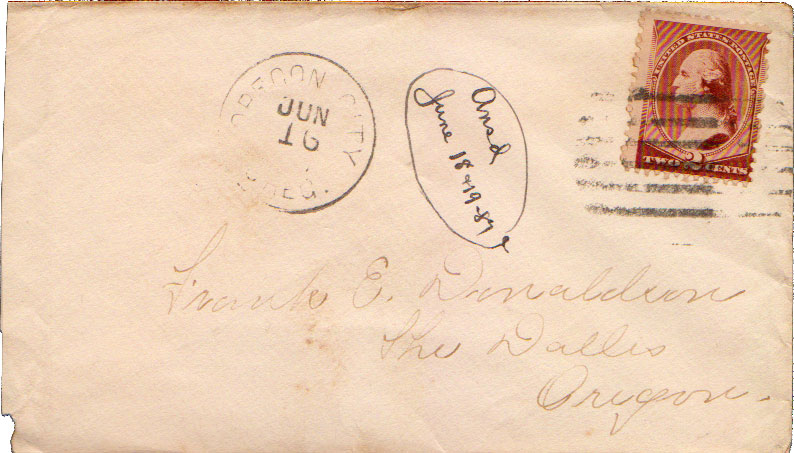 OREGON CITY
JUN
16
OREG.
Ansd
June 18 & 19-87
UNITED STATES POSTAGE
TWO 2 CENTS
Frank E. Donaldson
The Dalles
Oregon.